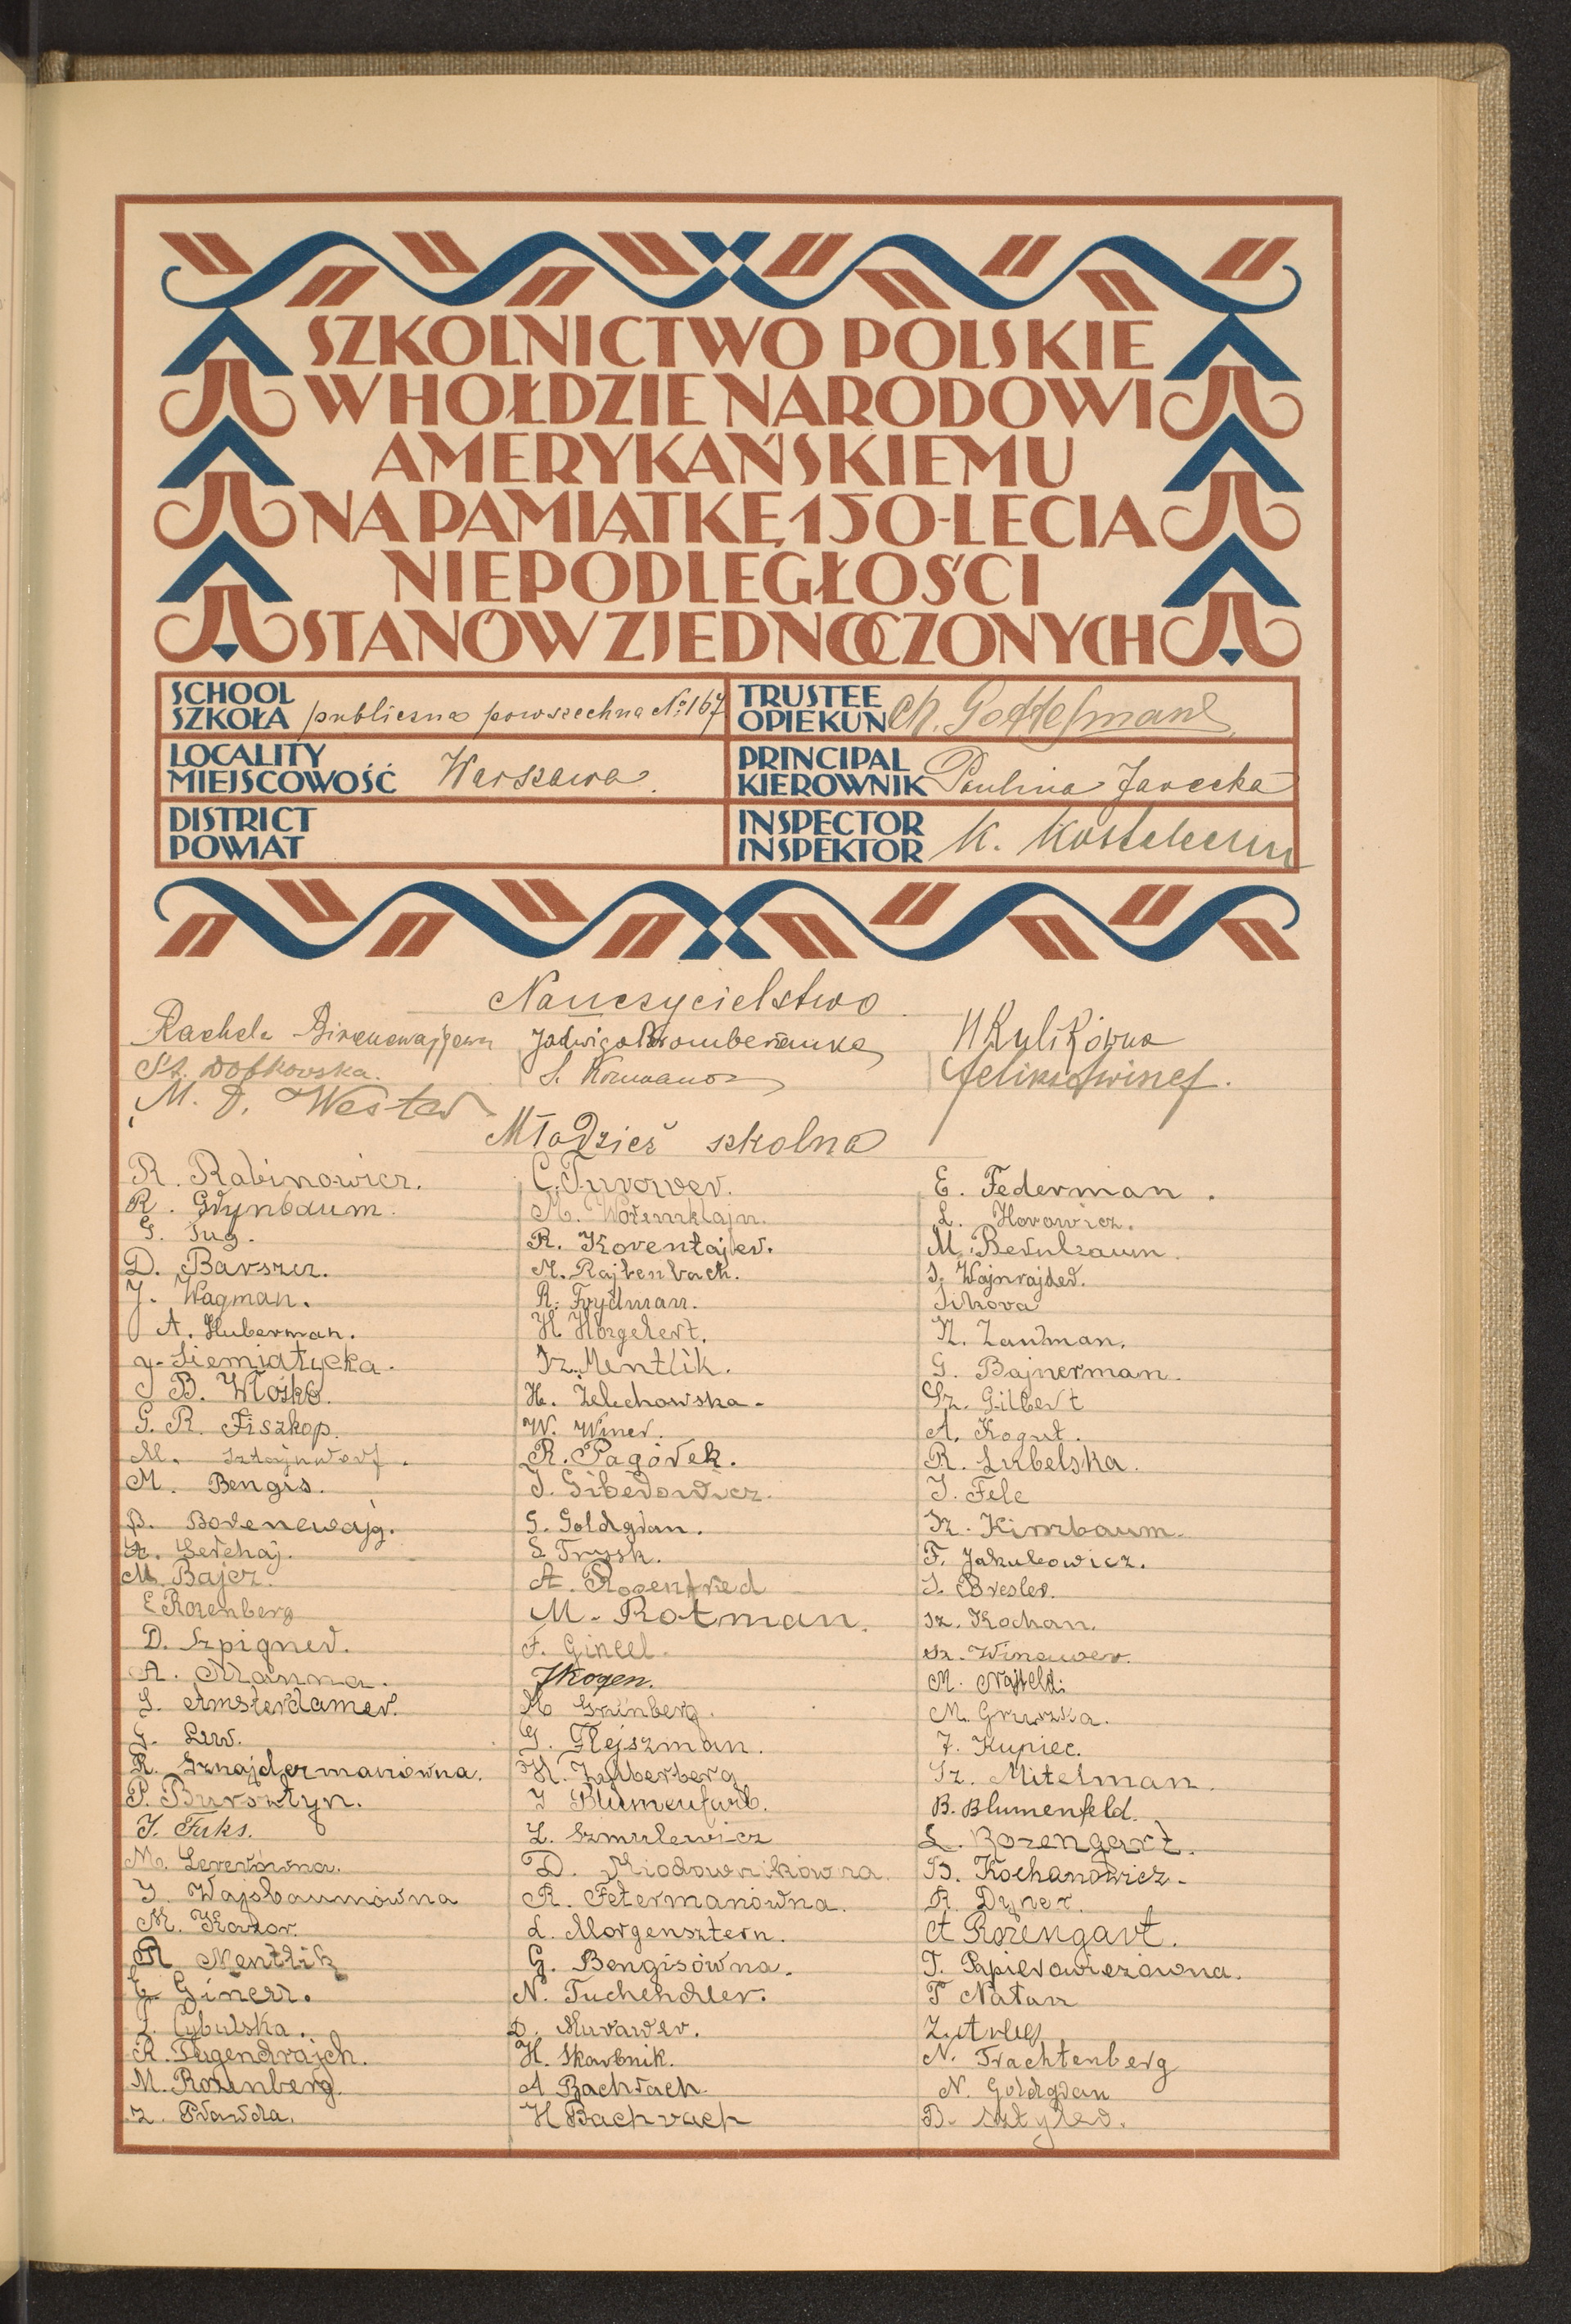 SZKOLNICTWO POLSKIE
W HOŁDZIE NARODOWI
AMERYKAŃSKIEMU
NA PAMIĄTKĘ 150-LECIA
NIEPODLEGŁOŚCI
STANÓW ZJEDNOCZONYCH
SCHOOL
SZKOŁA publiczna powszechna № 167
TRUSTEE
OPIEKUN Ch. Gottesman
LOCALITY
MIEJSCOWOŚĆ Warszawa.
PRINCIPAL
KIEROWNIK Paulina Jarecka
DISTRICT
POWIAT
INSPECTOR
INSPEKTOR K.
Nauczycielstwo
Rachela
Jadwiga
Kulikówna
St. Dobkowska.
S.
M. D.
Młodzież szkolna
R. Rabinowicz.
R. Grynbaum.
G. Tug.
D. Barszcz.
J. Wagman.
A. Huberman.
Siemiatycka.
B. Włosko.
G. R. Fiszkop.
M.
M. Bengis.
B. Borenewajg.
Serchaj.
M. Bajcz.
E Rozenberg
D. Szpigner.
A. Manna.
S. Amsterdamer.
G. Lew.
R. Sznajdermanówna.
P. Bursztyn.
J. Fuks.
M. Lererówna.
J. Wajsbaumówna
M. Kadzor.
R Mentlik
E. Giner.
Z. Cybulska.
R. Tugendrajch.
M. Rozenberg.
Z. Prawda.
C. Turower.
M.
R. Korentajer.
M. Rajtenbach.
R. Frydman.
H Horgelert.
Sz. Mentlik.
H. Żelechowska.
W. Winer.
R. Pagórek.
J.
G. Goldgran.
S. Trysk.
A. Rozenfred
M. Rotman.
F. Gincel.
J Kogen.
M Grinberg.
G. Flejszman.
H. Zylberberg
J Blumenfarb.
L. Szmulewicz
D. Miodownikówna.
R. Fetermanówna.
L. Morgensztern.
G. Bengisówna.
N. Tuchendler.
D. Murawer.
H. Skarbnik.
A Bachrach.
H Bachrach
E. Federman.
L. Horowicz.
M.
S. Wajnrajder.
Sikora
N. Zautman.
G. Bajnerman.
Sz. Gilbert
A. Kogut.
R. Lubelska.
J. Fele
Sz. Kirnbaum.
F. Jakubowicz.
J. Bresler.
Sz. Kochan.
Sz. Winawer.
M. Najfeld.
M. Gruszka.
J. Kupiec.
Sz. Mitelman.
B. Blumenfeld.
L. Rozengart.
B. Kochanowicz.
R. Dyner.
A Rozengart.
T. Papierowiczówna.
T Natan
Z.
N. Trachtenberg
N. Goldgran
B. Sztyler.